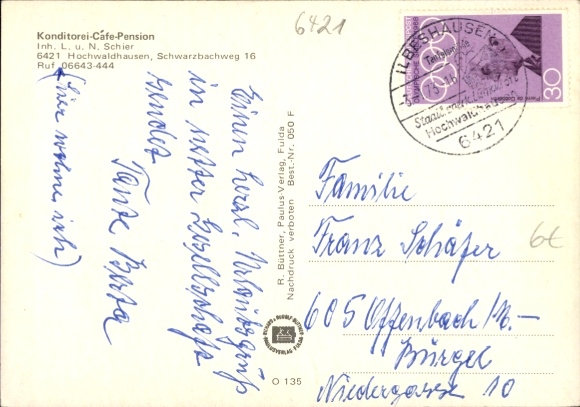 Konditorei-Café-Pension
Inh. L. u. N. Schier
6421 Hochwaldhausen, Schwarzbachweg 16
Ruf 06643-444
6421
Einen herzl. Urlaubsgruß
in netter Gesellschaft
sendet
Tante Berta
(hier wohne ich)
R. Büttner, Paulus-Verlag, Fulda
Nachdruck verboten Best.-Nr. 050 F
O 135
ILBESHAUSEN
Hochwaldhausen
6421
30
Familie
Franz Schäfer
605 Offenbach/M.-
Bürgel
Niedergasse 10
6t